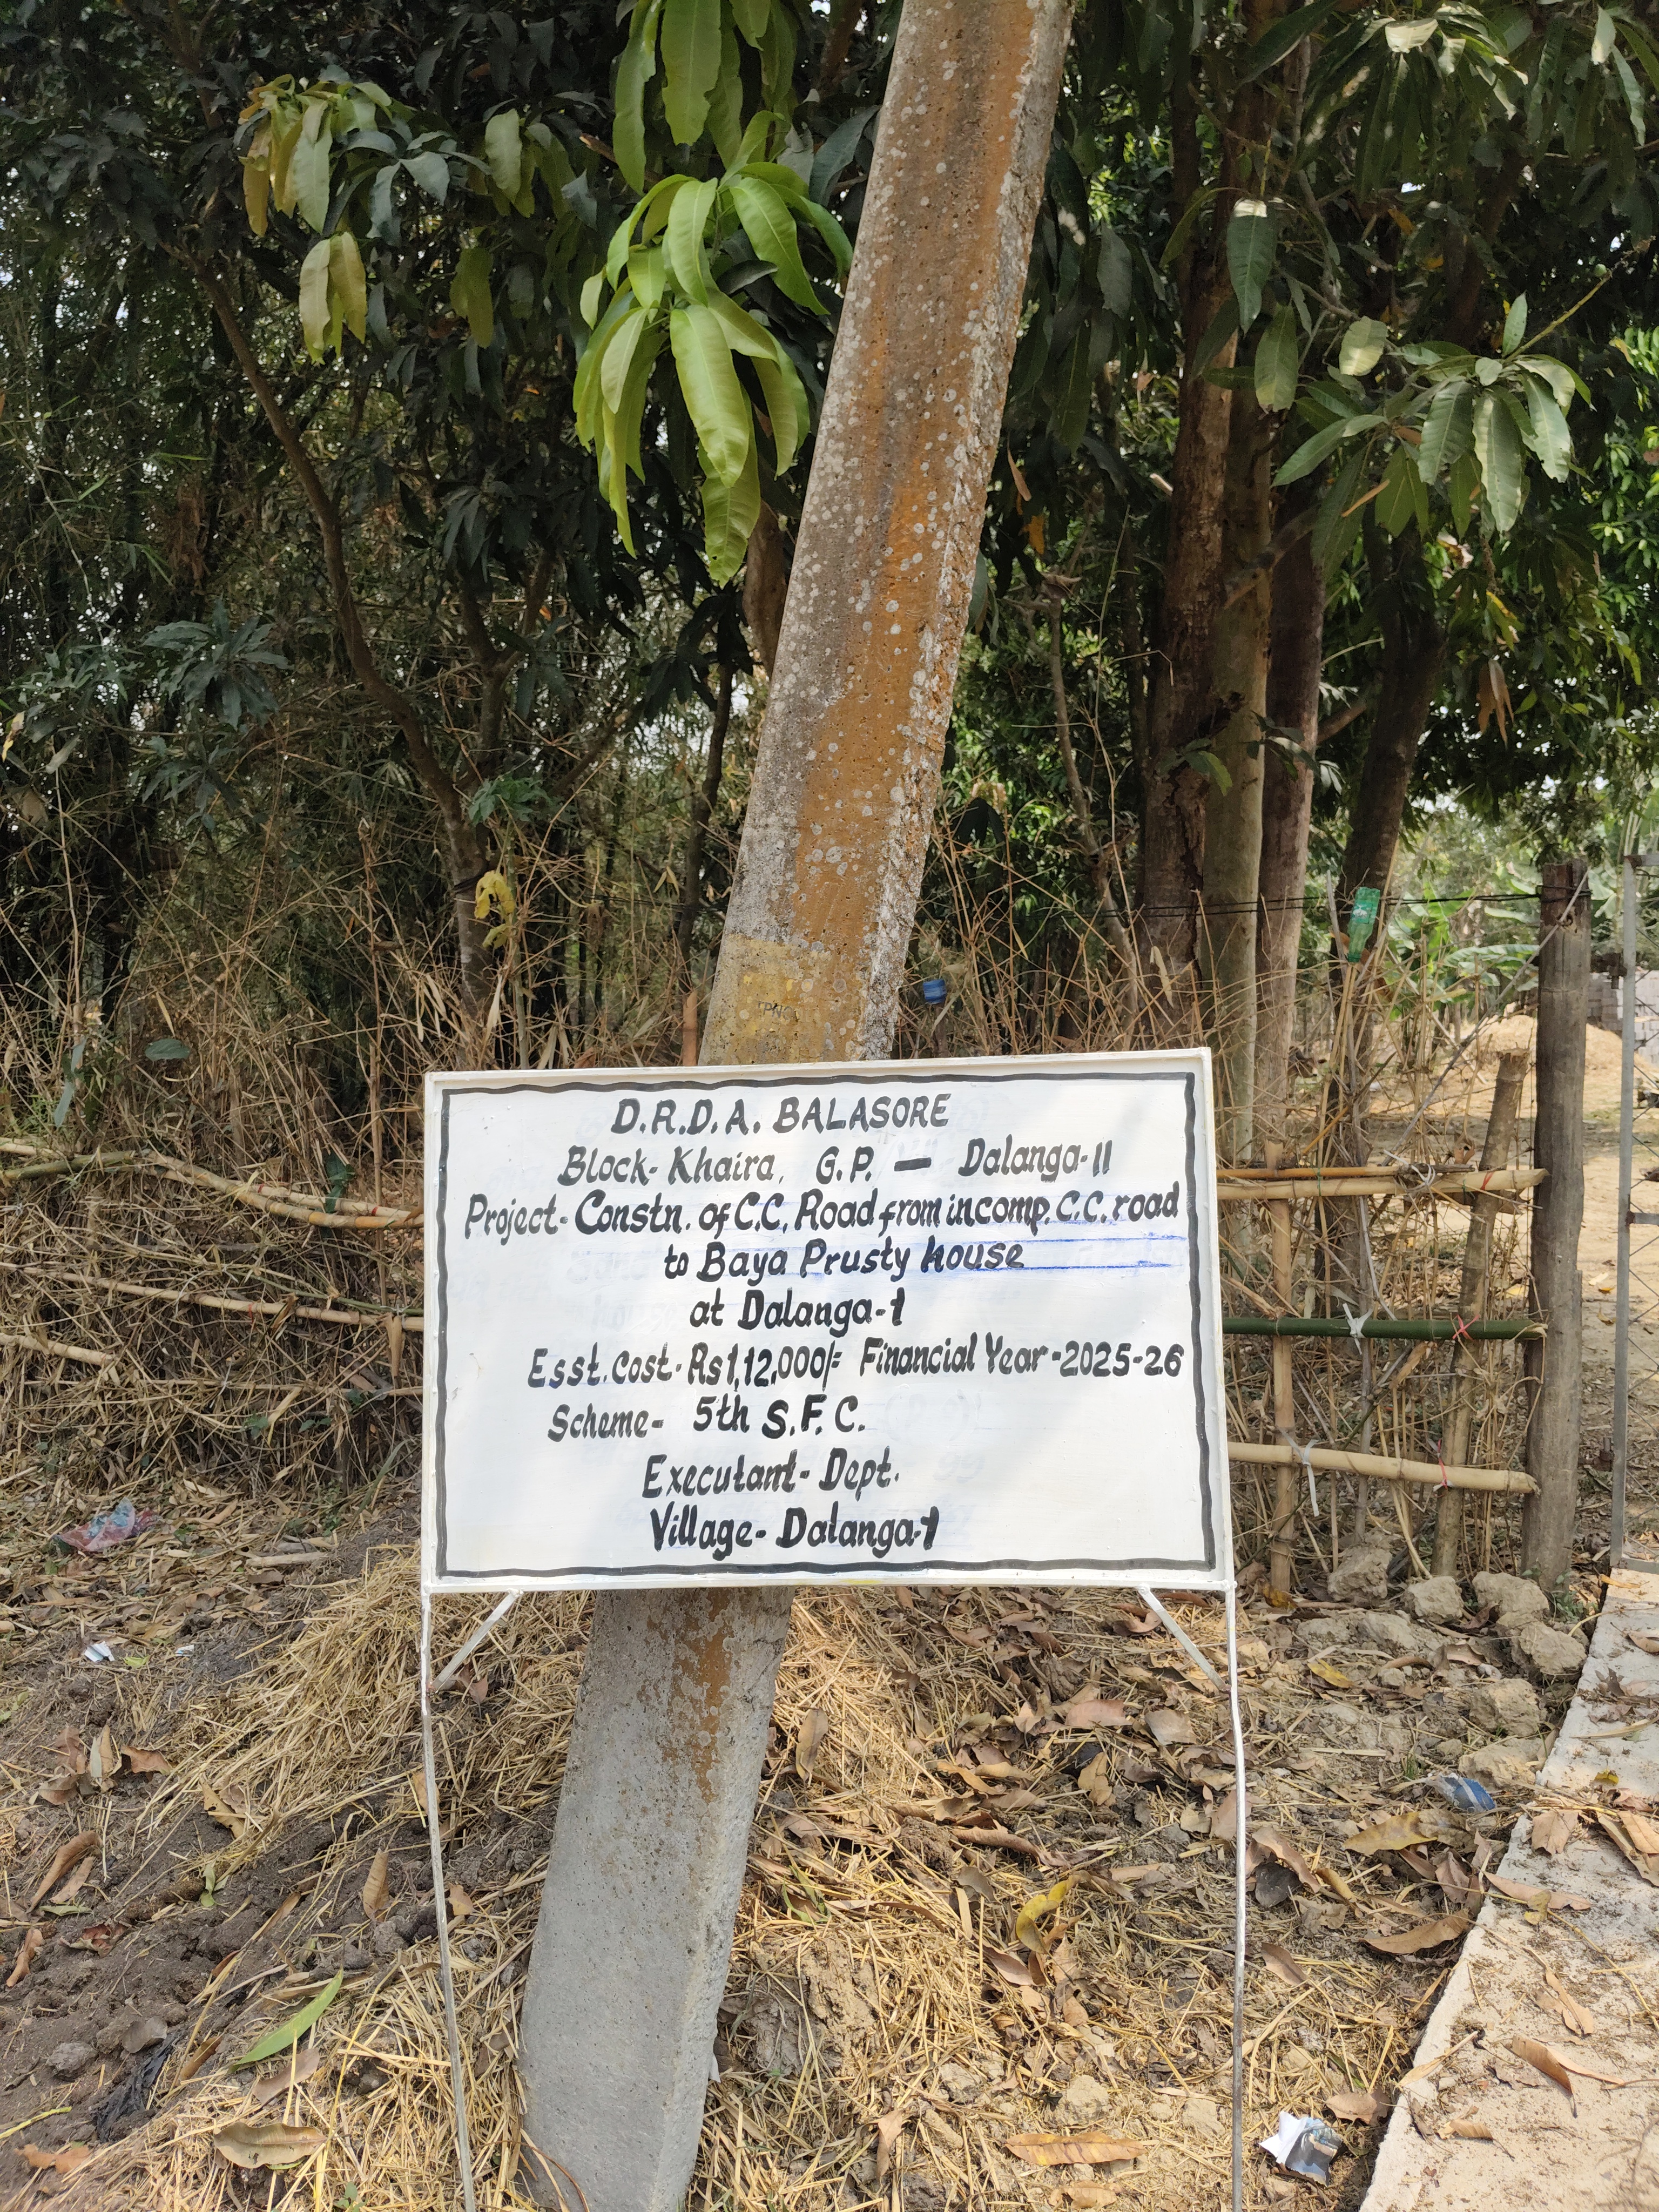 D.R.D.A. BALASORE
Block- Khaira, G.P. — Dalanga-II
Project- Constn. of C.C. Road from incomp. C.C. road
to Baya Prusty house
at Dalanga-1
Esst. Cost- Rs 1,12,000/= Financial Year-2025-26
Scheme- 5th S.F.C.
Executant- Dept.
Village- Dalanga-1